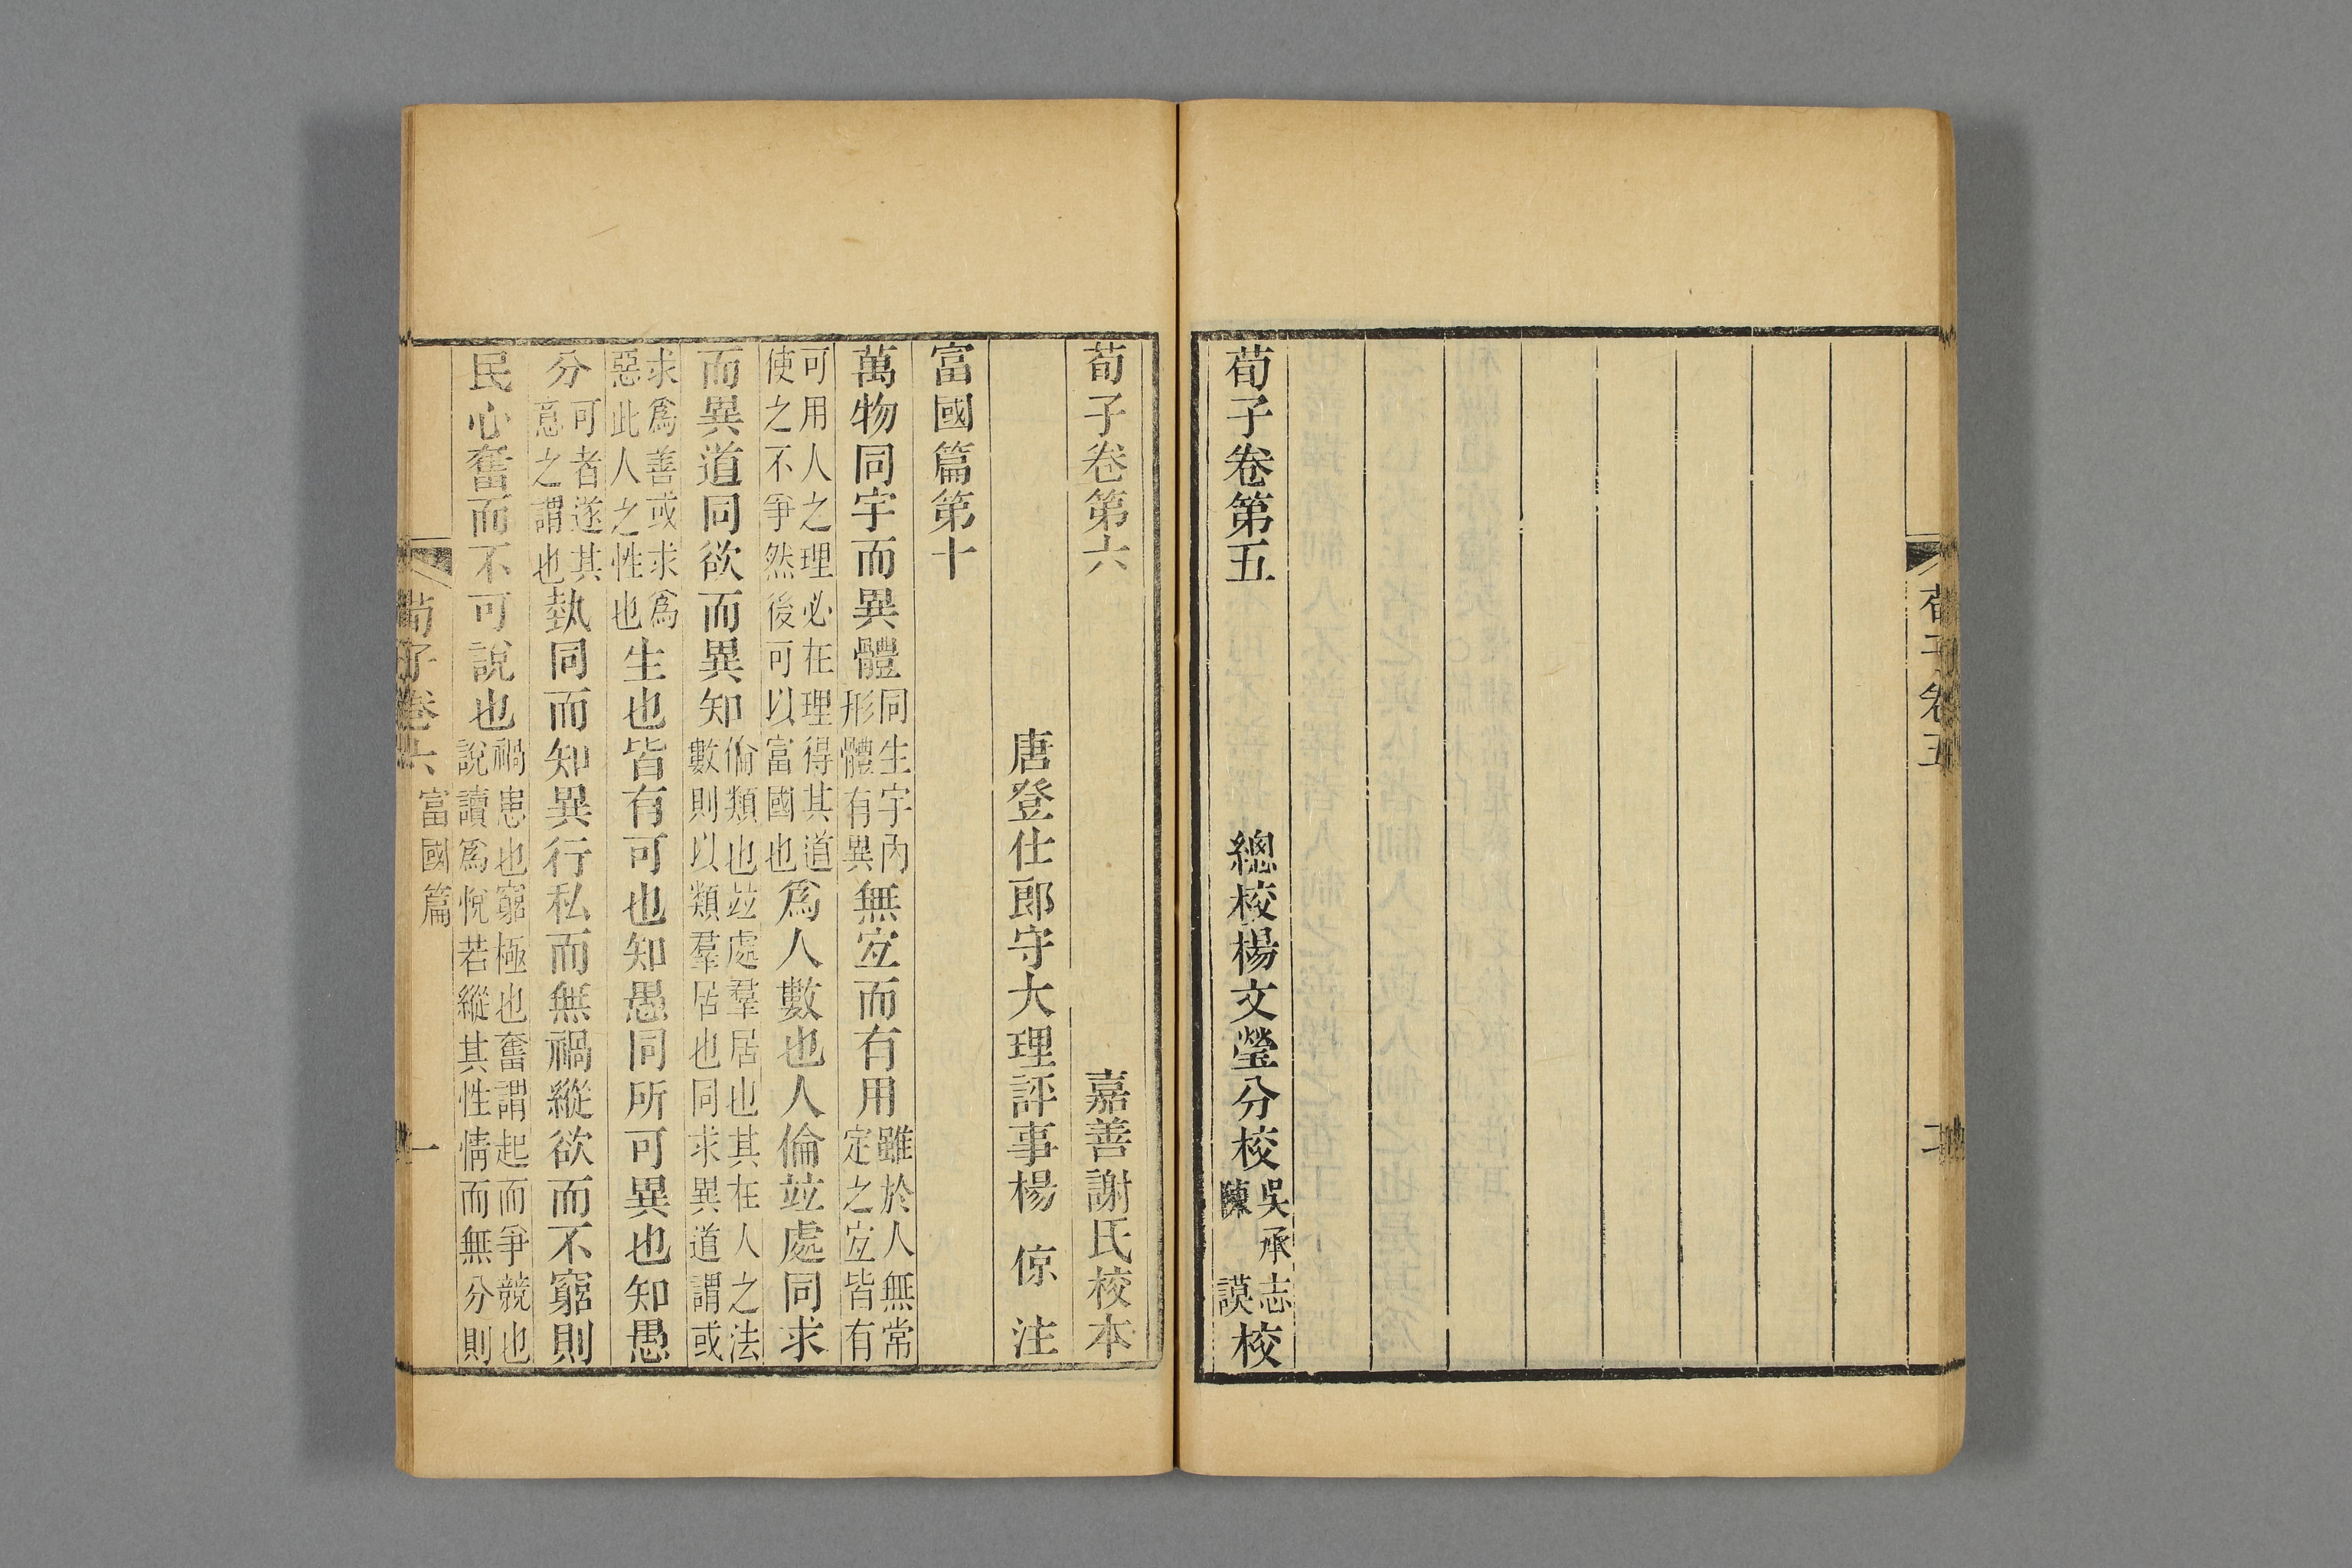 荀子卷五
荀子卷第五　總校楊文瑩分校吳承志陳謨校
荀子卷第六　嘉善謝氏校本
唐登仕郎守大理評事楊倞注
富國篇第十
萬物同宇而異體同生宇內形體有異無宐而有用雖於人無常定之宐皆有
可用人之理必在理得其道使之不爭然後可以富國也爲人數也人倫竝處同求
而異道同欲而異知倫類也竝處羣居也其在人之法數則以類羣居也同求異道謂或
求爲善或求爲惡此人之性也生也皆有可也知愚同所可異也知愚
分可者遂其意之謂也埶同而知異行私而無禍縱欲而不窮則
民心奮而不可說也禍患也窮極也奮謂起而爭競也說讀爲悅若縱其性情而無分則
荀子卷六　富國篇　一